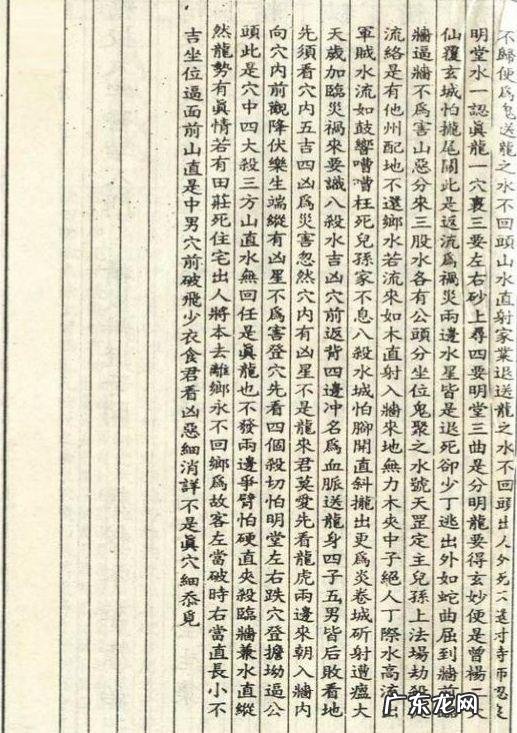 不歸便爲鬼送龍之水不回頭山水直射家業退送龍之水不回頭出人外死
明堂水一認眞龍一穴裏三要左右砂上尋四要明堂三曲是分明龍要得玄妙便是曾楊
仙覆玄城怕攏尾關此是返流爲禍災兩邊水星皆是退死卻少丁逃出外如蛇曲屈到牆前
牆逼牆不爲害山惡分來三股水各有公頭分坐位鬼聚之水號天罡定主兒孫上法場劫殺
流絡是有他州配地不還鄉水若流來如木直射入牆來地無力木夾中子絕人丁際水高流出
軍賊水流如鼓響嘈嘈枉死兒孫家不息八殺水城怕腳開直斜攏出更爲炎卷城斫射遭瘟大
天歲加臨災禍來要識八殺水吉凶穴前返背四邊冲名爲血脈送龍身四子五男皆后敗看地
先須看穴内五吉四凶爲災害忽然穴内有凶星不是龍來君莫愛先看龍虎兩邊來朝入牆内
向穴内前觀降伏樂生端縱有凶星不爲害登穴先看四個殺切怕明堂左右跌穴登擔坳逼公
頭此是穴中四大殺三方山直水無回任是眞龍也不發兩邊爭臂怕硬直夾殺臨牆兼水直縱
然龍勢有眞情若有田莊死住宅出人將本去離鄉永不回鄉爲故客左當破時右當直長小不
吉坐位逼面前山直是中男穴前破飛少衣食君看凶惡細消詳不是眞穴細叅覓
广东龙网